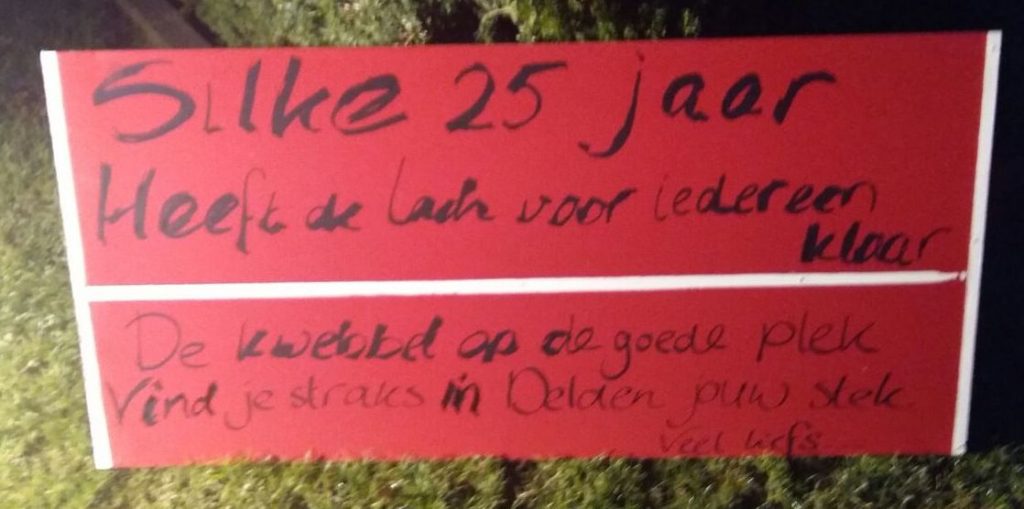 Silke 25 jaar
Heeft de lach voor iedereen
klaar
De kwebbel op de goede plek
Vind je straks in Delden jouw stek
Veel liefs